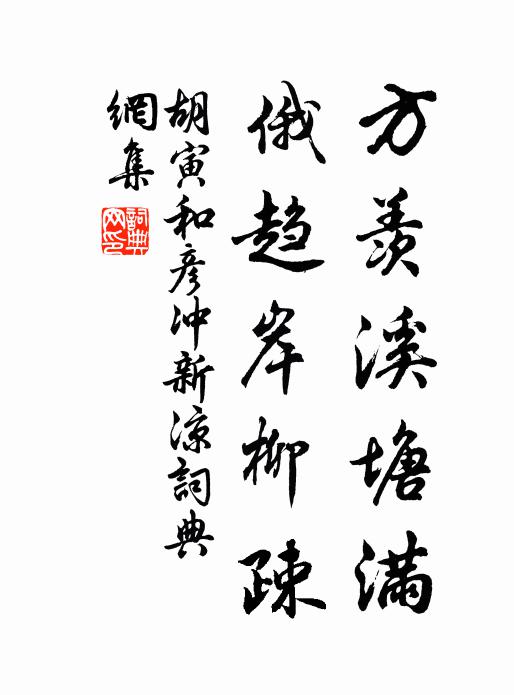 方羨溪塘滿
俄趋岸柳疎
胡寅和彦冲新凉詞典
網集
詞典网印